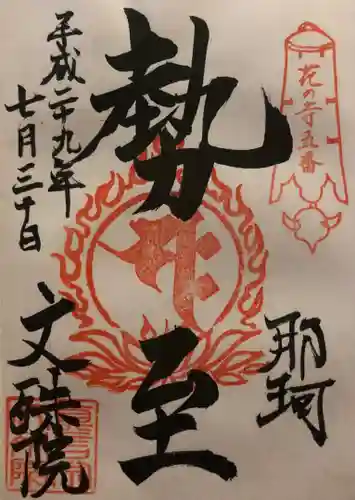 花の寺五番
那珂
勢至
平成二十九年
七月三十日
文殊院